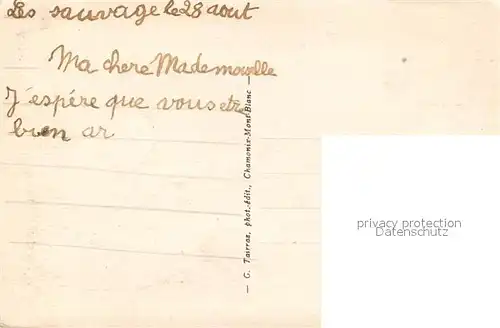 Les sauvage le 28 aout
Ma chere Mademoiselle
J'espère que vous etre
bien ar
— G. Tairraz, phot.-édit., Chamonix-Mont-Blanc —
privacy protection
Datenschutz